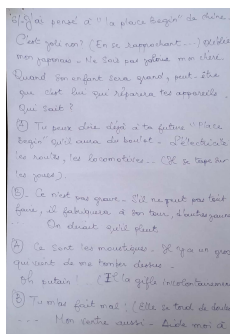 J'ai pensé à "la place begin" de chine.
C'est joli non? (En se rapprochant...)
mon japonais. Ne sois pas jalouse mon chéri.
Quand son enfant sera grand, peut-être
que c'est lui qui réparera tes appareils.
Qui sait?
Tu peux dire déjà à ta future "Place
begin" qu'il aura du boulot. L'électricité
les routes, les locomotives... (Il se tape sur
les joues).
Ce n'est pas grave. S'il ne peut pas tout
faire, il fabriquera à son tour, d'autres
On dirait qu'il pleut.
Ce sont les moustiques. Il y a un gros
qui vient de me tomber dessus.
Oh putain! (Il la gifle involontairement
Tu m'as fait mal! (Elle se tord de
Mon ventre aussi. Aide moi à